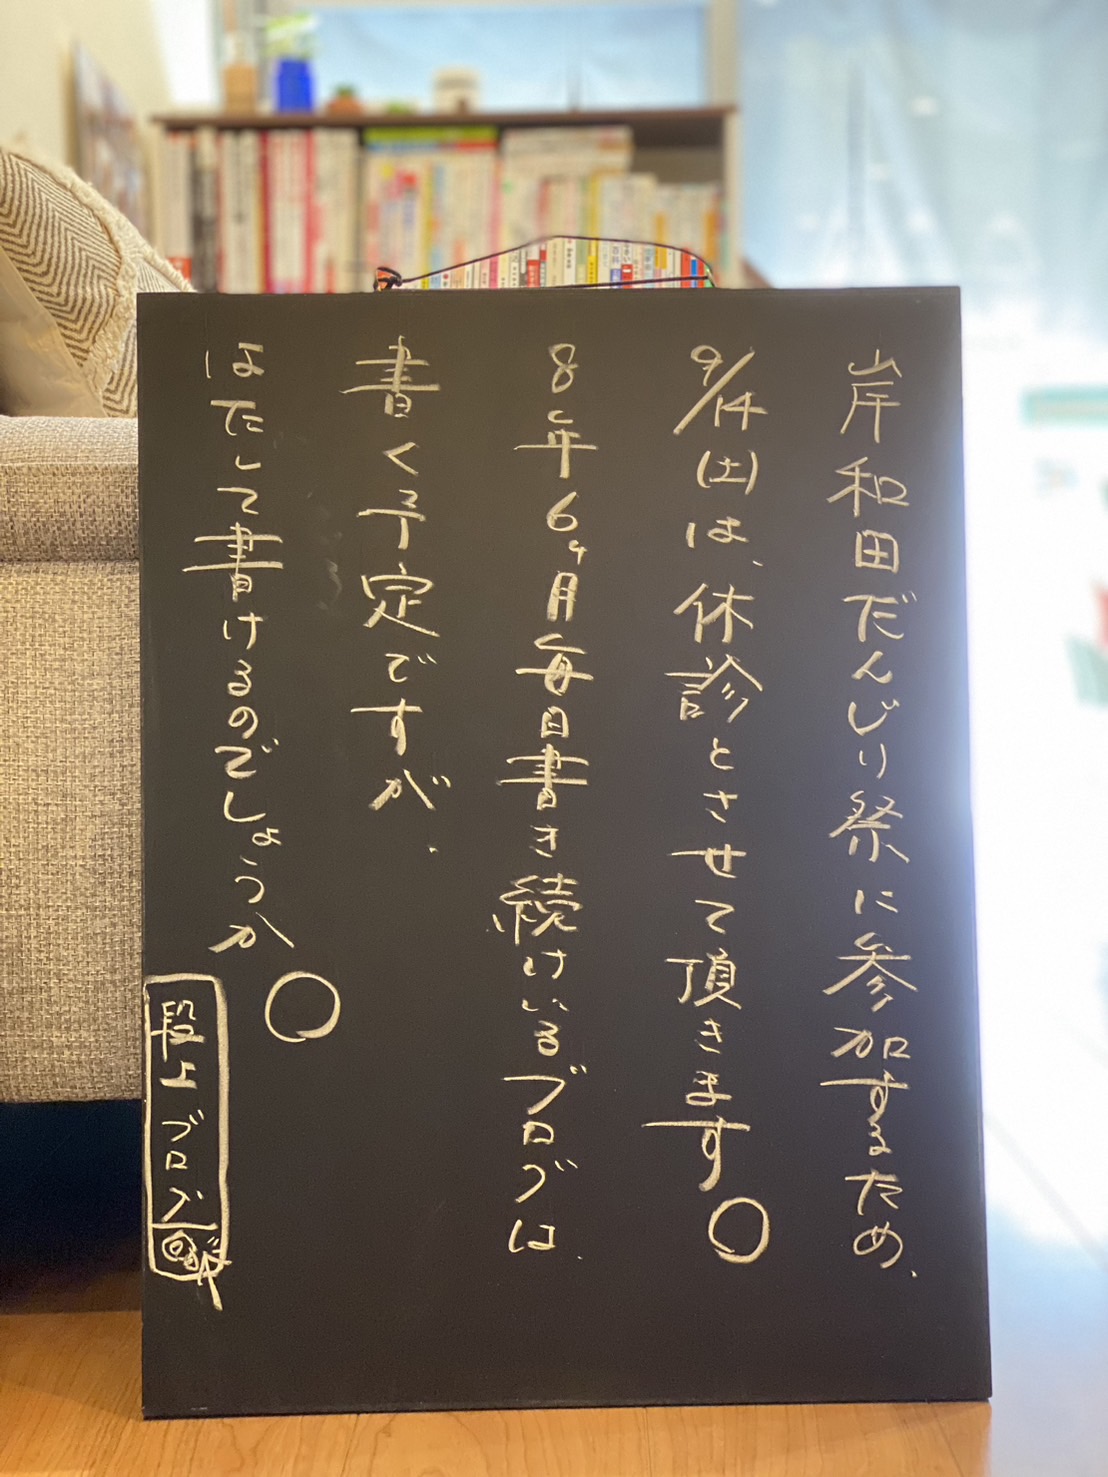 岸和田だんじり祭に参加するため、
9/14(土)は、休診とさせて頂きます。
8年6ヶ月毎日書き続けいるブログは、
書く予定ですが、
はたして書けるのでしょうか。
段上ブログ